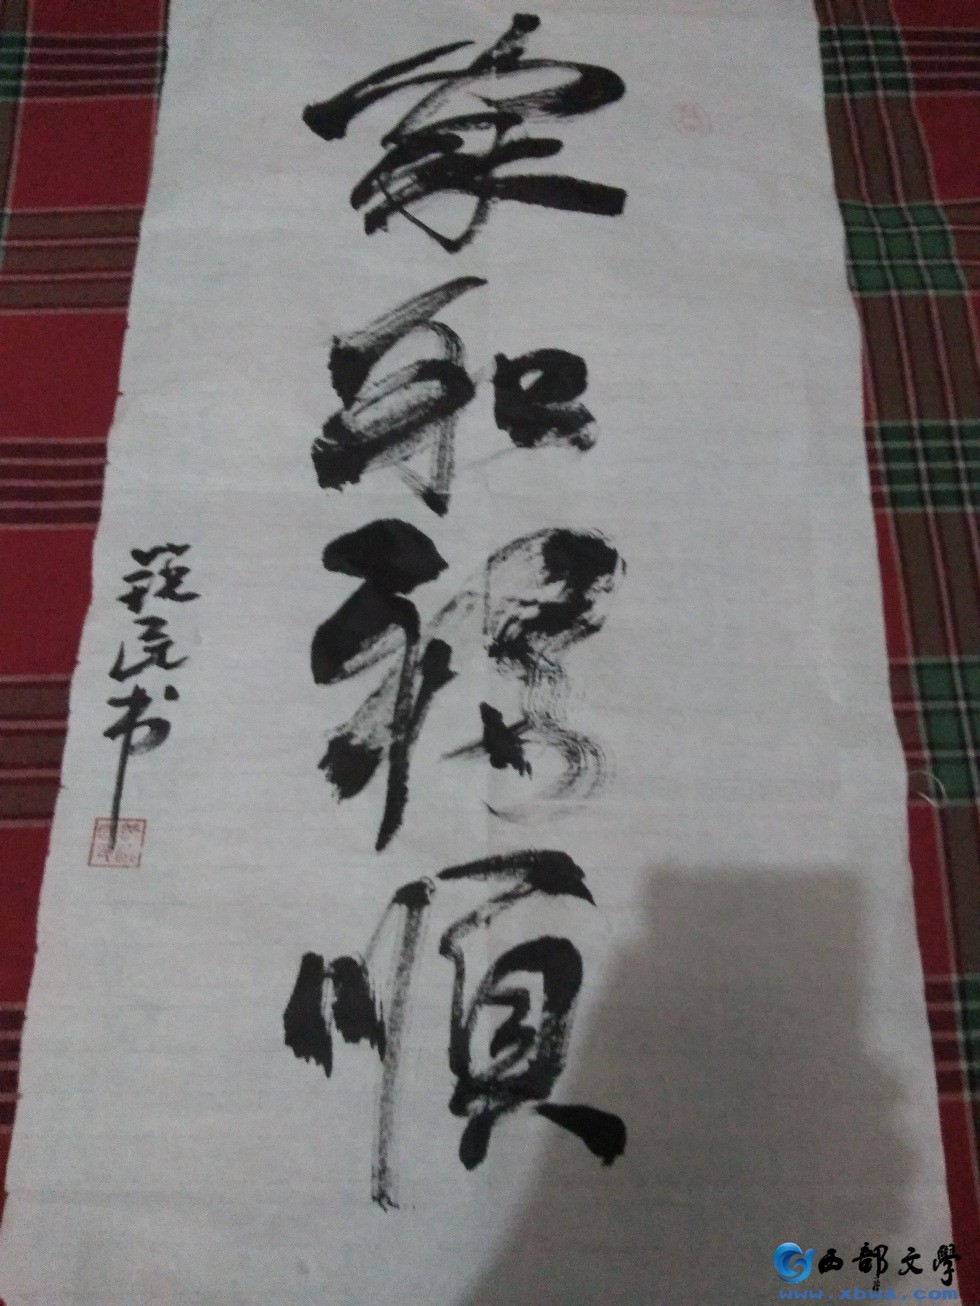 家和福顺
民书
西部文学
www.xbwx.com